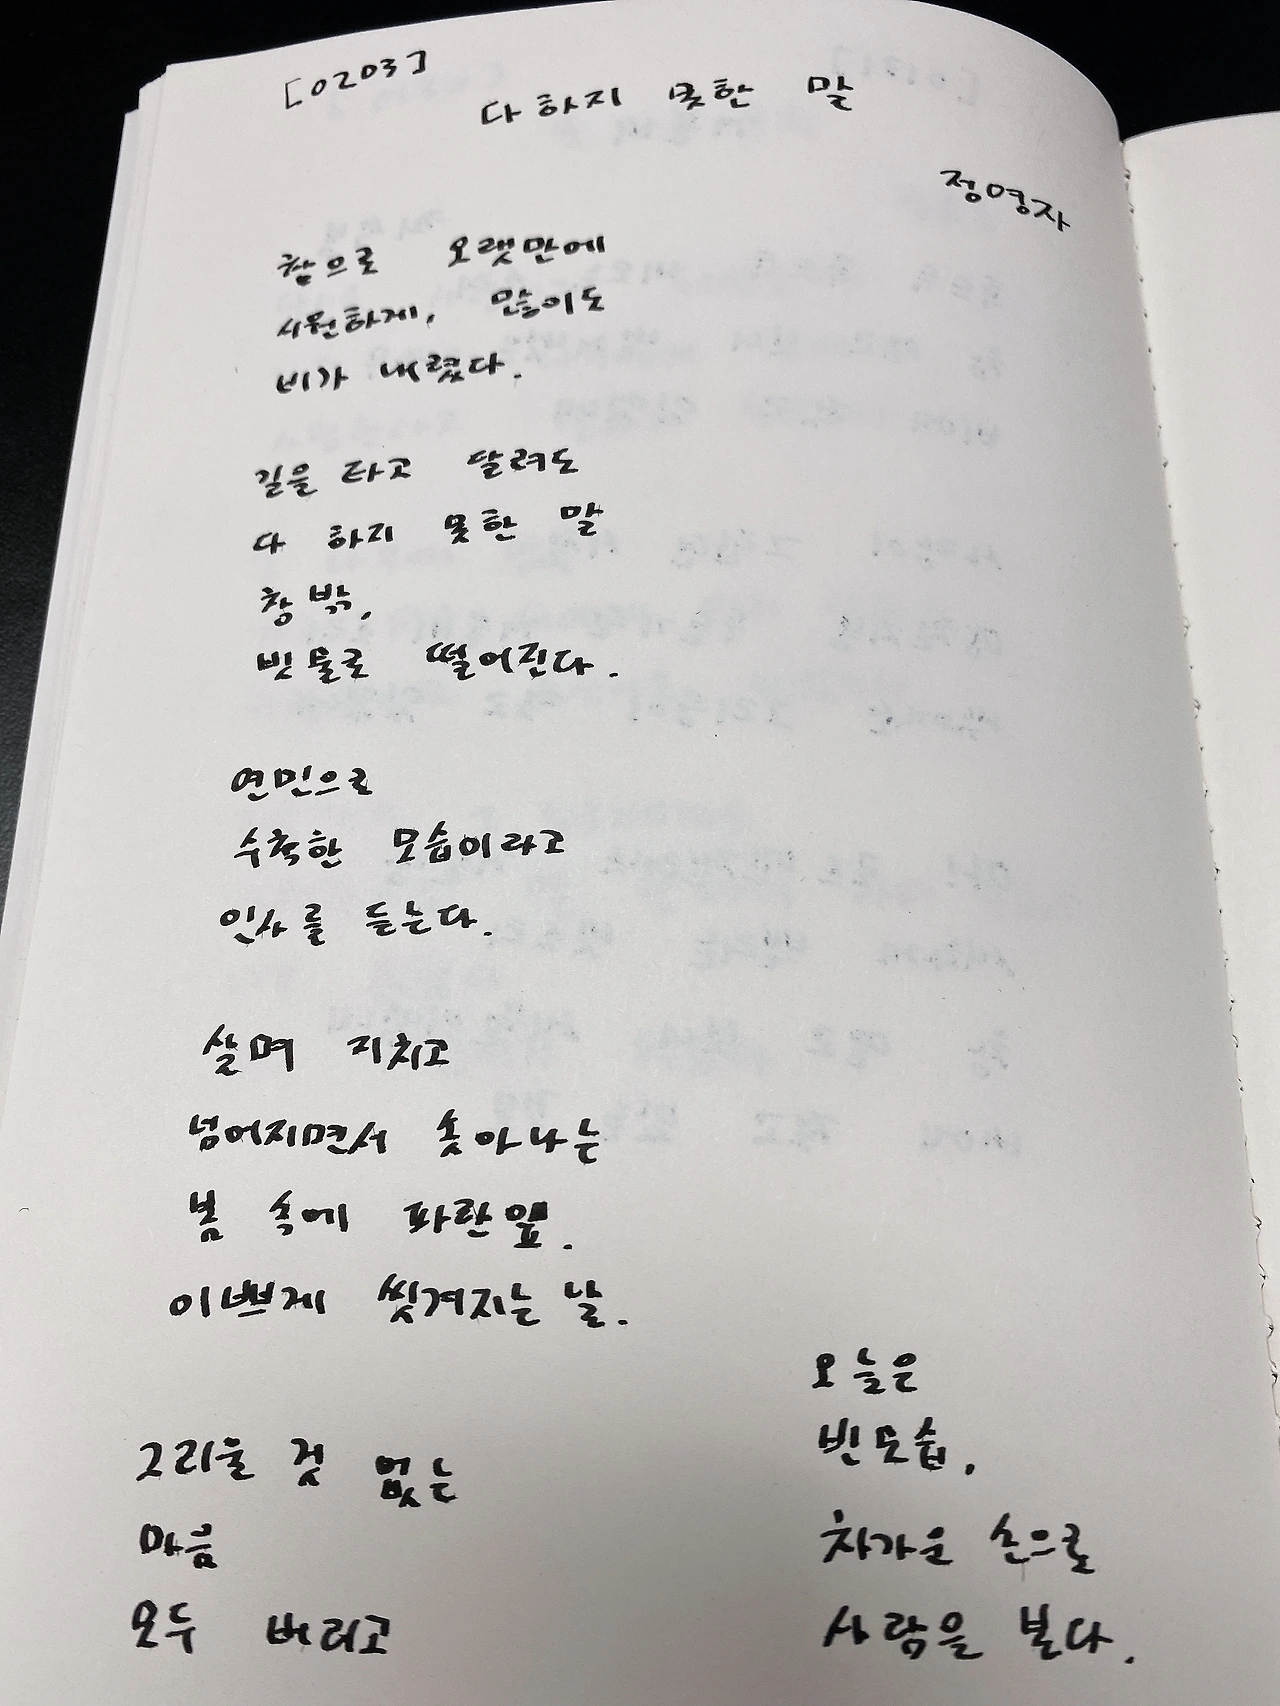 [0203]
다 하지 못한 말
정영자
참으로 오랫만에
시원하게, 많이도
비가 내렸다.
길을 타고 달려도
다 하지 못한 말
창밖,
빗물로 떨어진다.
연민으로
수척한 모습이라고
인사를 듣는다.
살며 지치고
넘어지면서 솟아나는
봄 속에 파란 잎.
이쁘게 씻겨지는 날.
그리울 것 없는
마음
모두 버리고
오늘은
빈 모습.
차가운 손으로
사람을 본다.